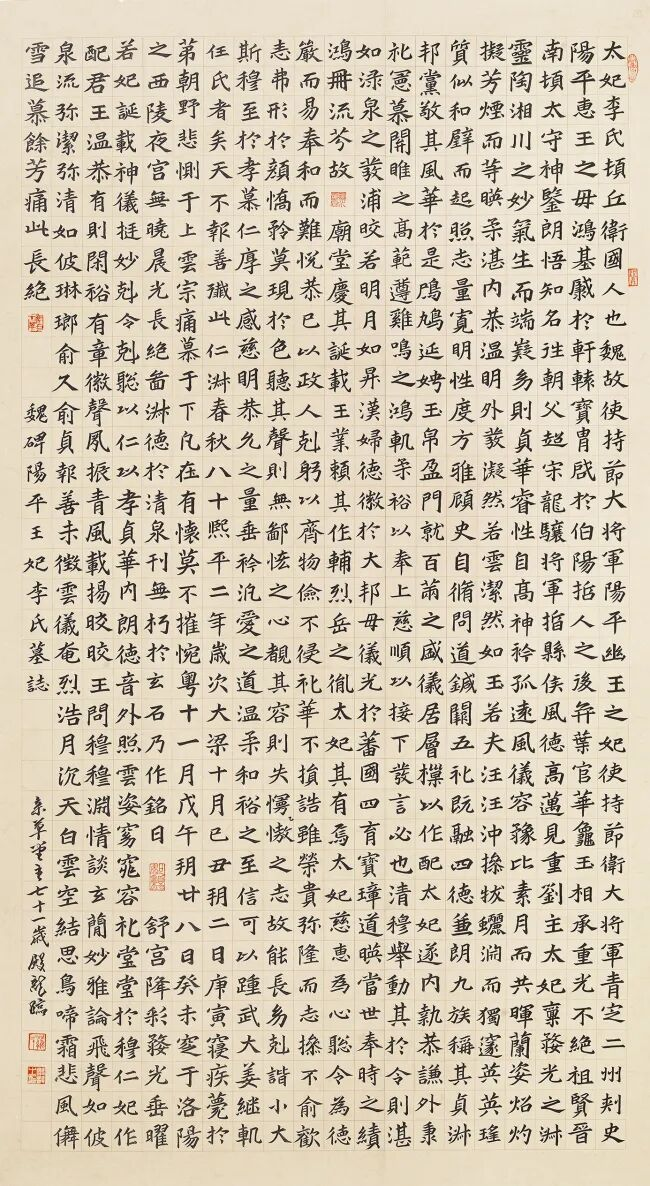 太妃李氏頓丘衛國人也魏故使持節大将軍陽平幽王之妃使持節衛大将軍青定二州刺史
陽平惠王之毋鴻基戚於軒轅寶胄啟於伯陽指人之後弈葉官華龜玉相承重光不絕祖賢晉
南頓太守神鑒朗悟知名往朝父超宋龍驤将軍指縣侯風德高邁見重劉主太妃稟發光之淑
靈陶湘川之妙氣生而端嶷易則貞華睿性自高神衿孤遠風儀容豫比素月而共暉蘭姿焰灼
擬芳煙而等暎柔湛内恭温明外發凝然若雲潔然如玉若夫汪汪沖操澗而獨邃英英瑤
質似和璧而起照志量寬明性度方雅顧史自脩問道鍼闢五礼既融四德兼朗九族稱其貞淑
邦黨敬其風華於是鳲鳩延娉玉帛盈門就百兩之盛儀居層櫟以作配太妃遂内執恭謙外秉
礼憲慕開雎之高範遵雞鳴之鴻軌柔裕以奉上慈順以接下發言必也清穆舉動其於令則湛
如淥泉之發浦皎若明月如昇漢婦德徽於大邦毋儀光於蕃國四育寶璋道暎當世奉時之績
鴻冊流芩故 廟堂慶其誕載王業頼其作輔烈岳之胤太妃其有焉太妃慈惠為心聡令為德
嚴而易奉和而難悅恭己以政人剋躬以齊物儉不侵礼華不損誥雖榮貴弥隆而志操不俞歡
志弗形於顔憍矜莫現於色聽其聲則無鄙恡之心覩其容則失慢憿之志故能長易剋諧小大
斯穆至於孝慕仁厚之感慈明恭允之量垂衿汎愛之道温柔和裕之至信可以踵武大姜継軌
任氏者矣天不報善殲此仁淑春秋八十熙平二年歲次大梁十月己丑玥二日庚寅寑疾薨於
苐朝野悲惻于上雲宗痛慕于下凡在有懷莫不摧惋粵十一月戊午玥廿八日癸未窆于洛陽
之西陵夜宫無曉晨光長絕啚淑德於清泉刊無朽於玄石乃作銘曰 舒宫降彩發光垂曜
若妃誕載神儀挺妙剋令剋聡以仁以孝貞華内朗德音外照雲姿窈窕容礼堂堂於穆仁妃作
配君王温恭有則閑裕有章徽聲夙振青風載揚皎皎王問穆穆淵情談玄簡妙雅論飛聲如彼
泉流弥潔弥清如彼琳瑯俞久俞貞報善未徵雲儀奄烈浩月沉天白雲空結思鳥啼霜悲風僲
雪追慕餘芳痛此長絕 魏碑陽平王妃李氏墓誌
草堂主七十一歲殷龍臨